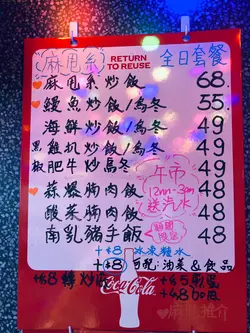 麻甩系
RETURN
TO REUSE
全日套餐
麻甩系炒飯 68.
鰻魚炒飯/烏冬 55.
海鮮炒飯/烏冬 49
黑雞扒炒飯/烏冬 49
椒肥牛炒烏冬 49
蒜爆腩肉飯 48
酸菜腩肉飯 48
南乳豬手飯 48
午市
12nn-3pm
送汽水
+$8 冰凍糖水
+$8 可配:油菜&飲品
Coca-Cola